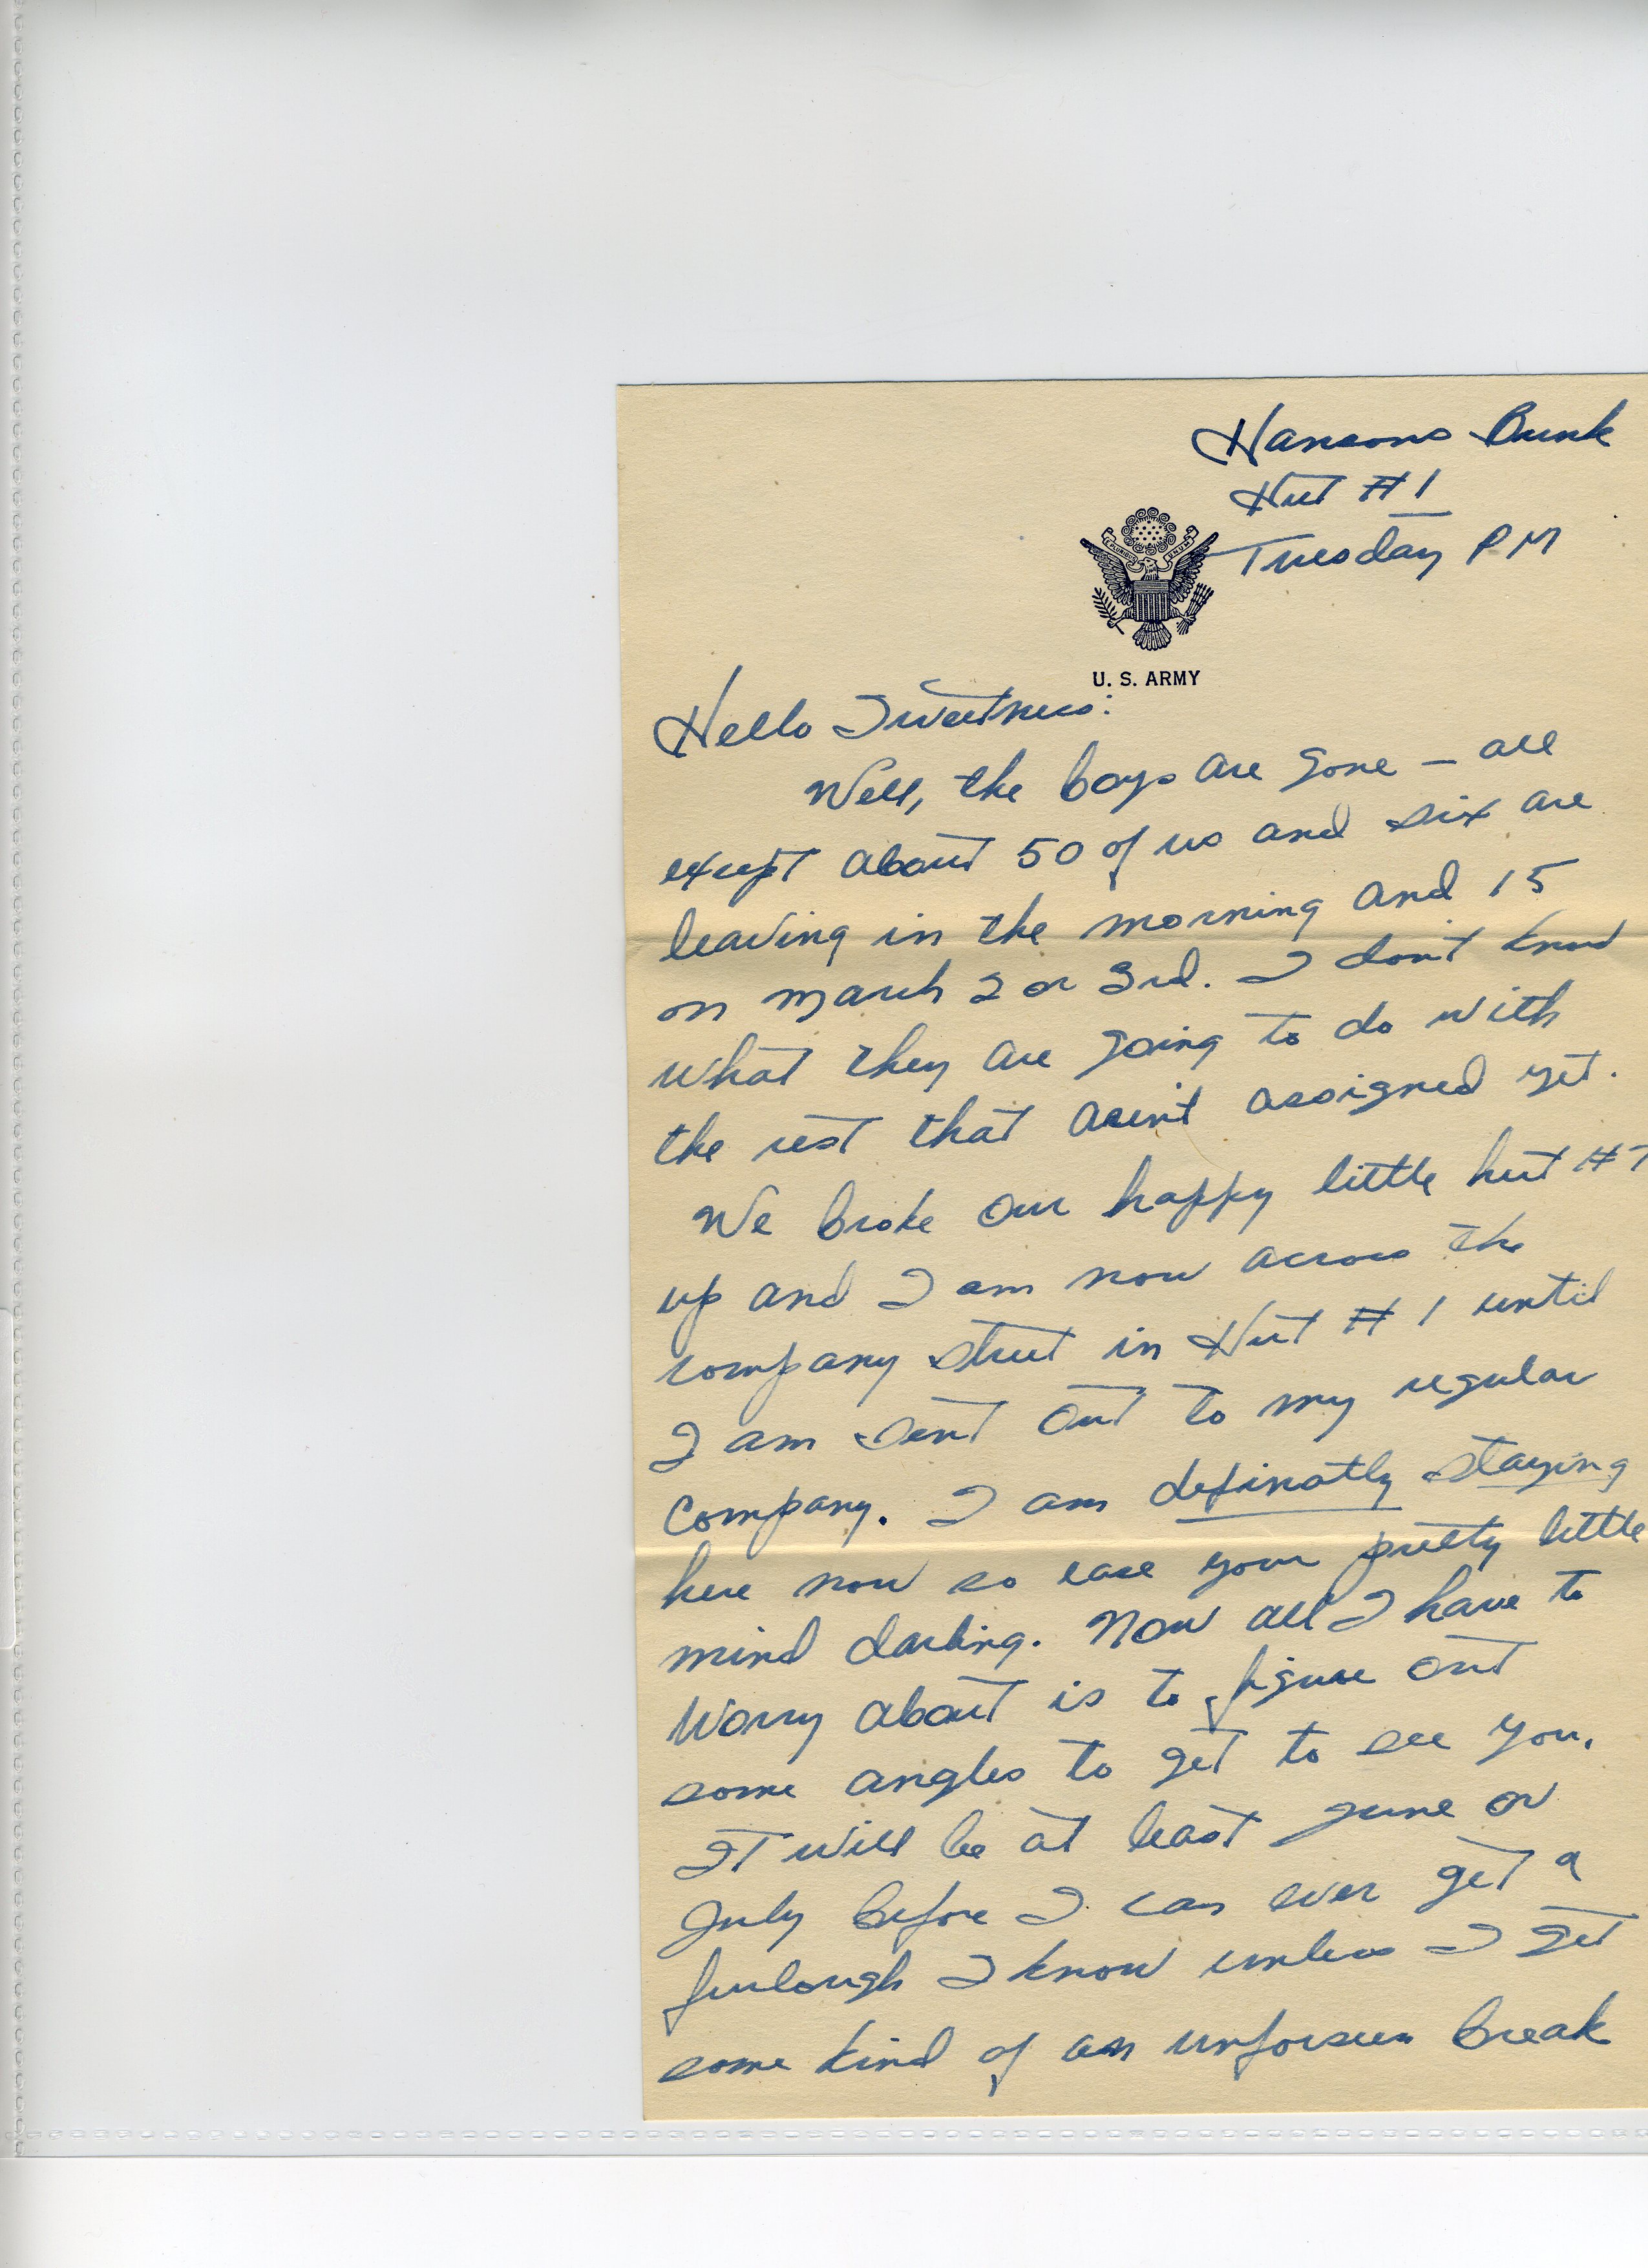 Hansons Bunk
Hut #1
Tuesday PM
E PLURIBUS UNUM
U. S. ARMY
Hello Sweetness:
Well, the boys are gone – all
except about 50 of us and six are
leaving in the morning and 15
on March 2 or 3rd. I don't know
what they are going to do with
the rest that aren't assigned yet.
We broke our happy little hut #7
up and I am now across the
company street in Hut #1 until
I am sent out to my regular
company. I am definatly staying
here now so ease your pretty little
mind darling. Now all I have to
worry about is to figure out
some angles to get to see you.
It will be at least June or
July before I can ever get a
furlough I know unless I get
some kind of an unforseen break